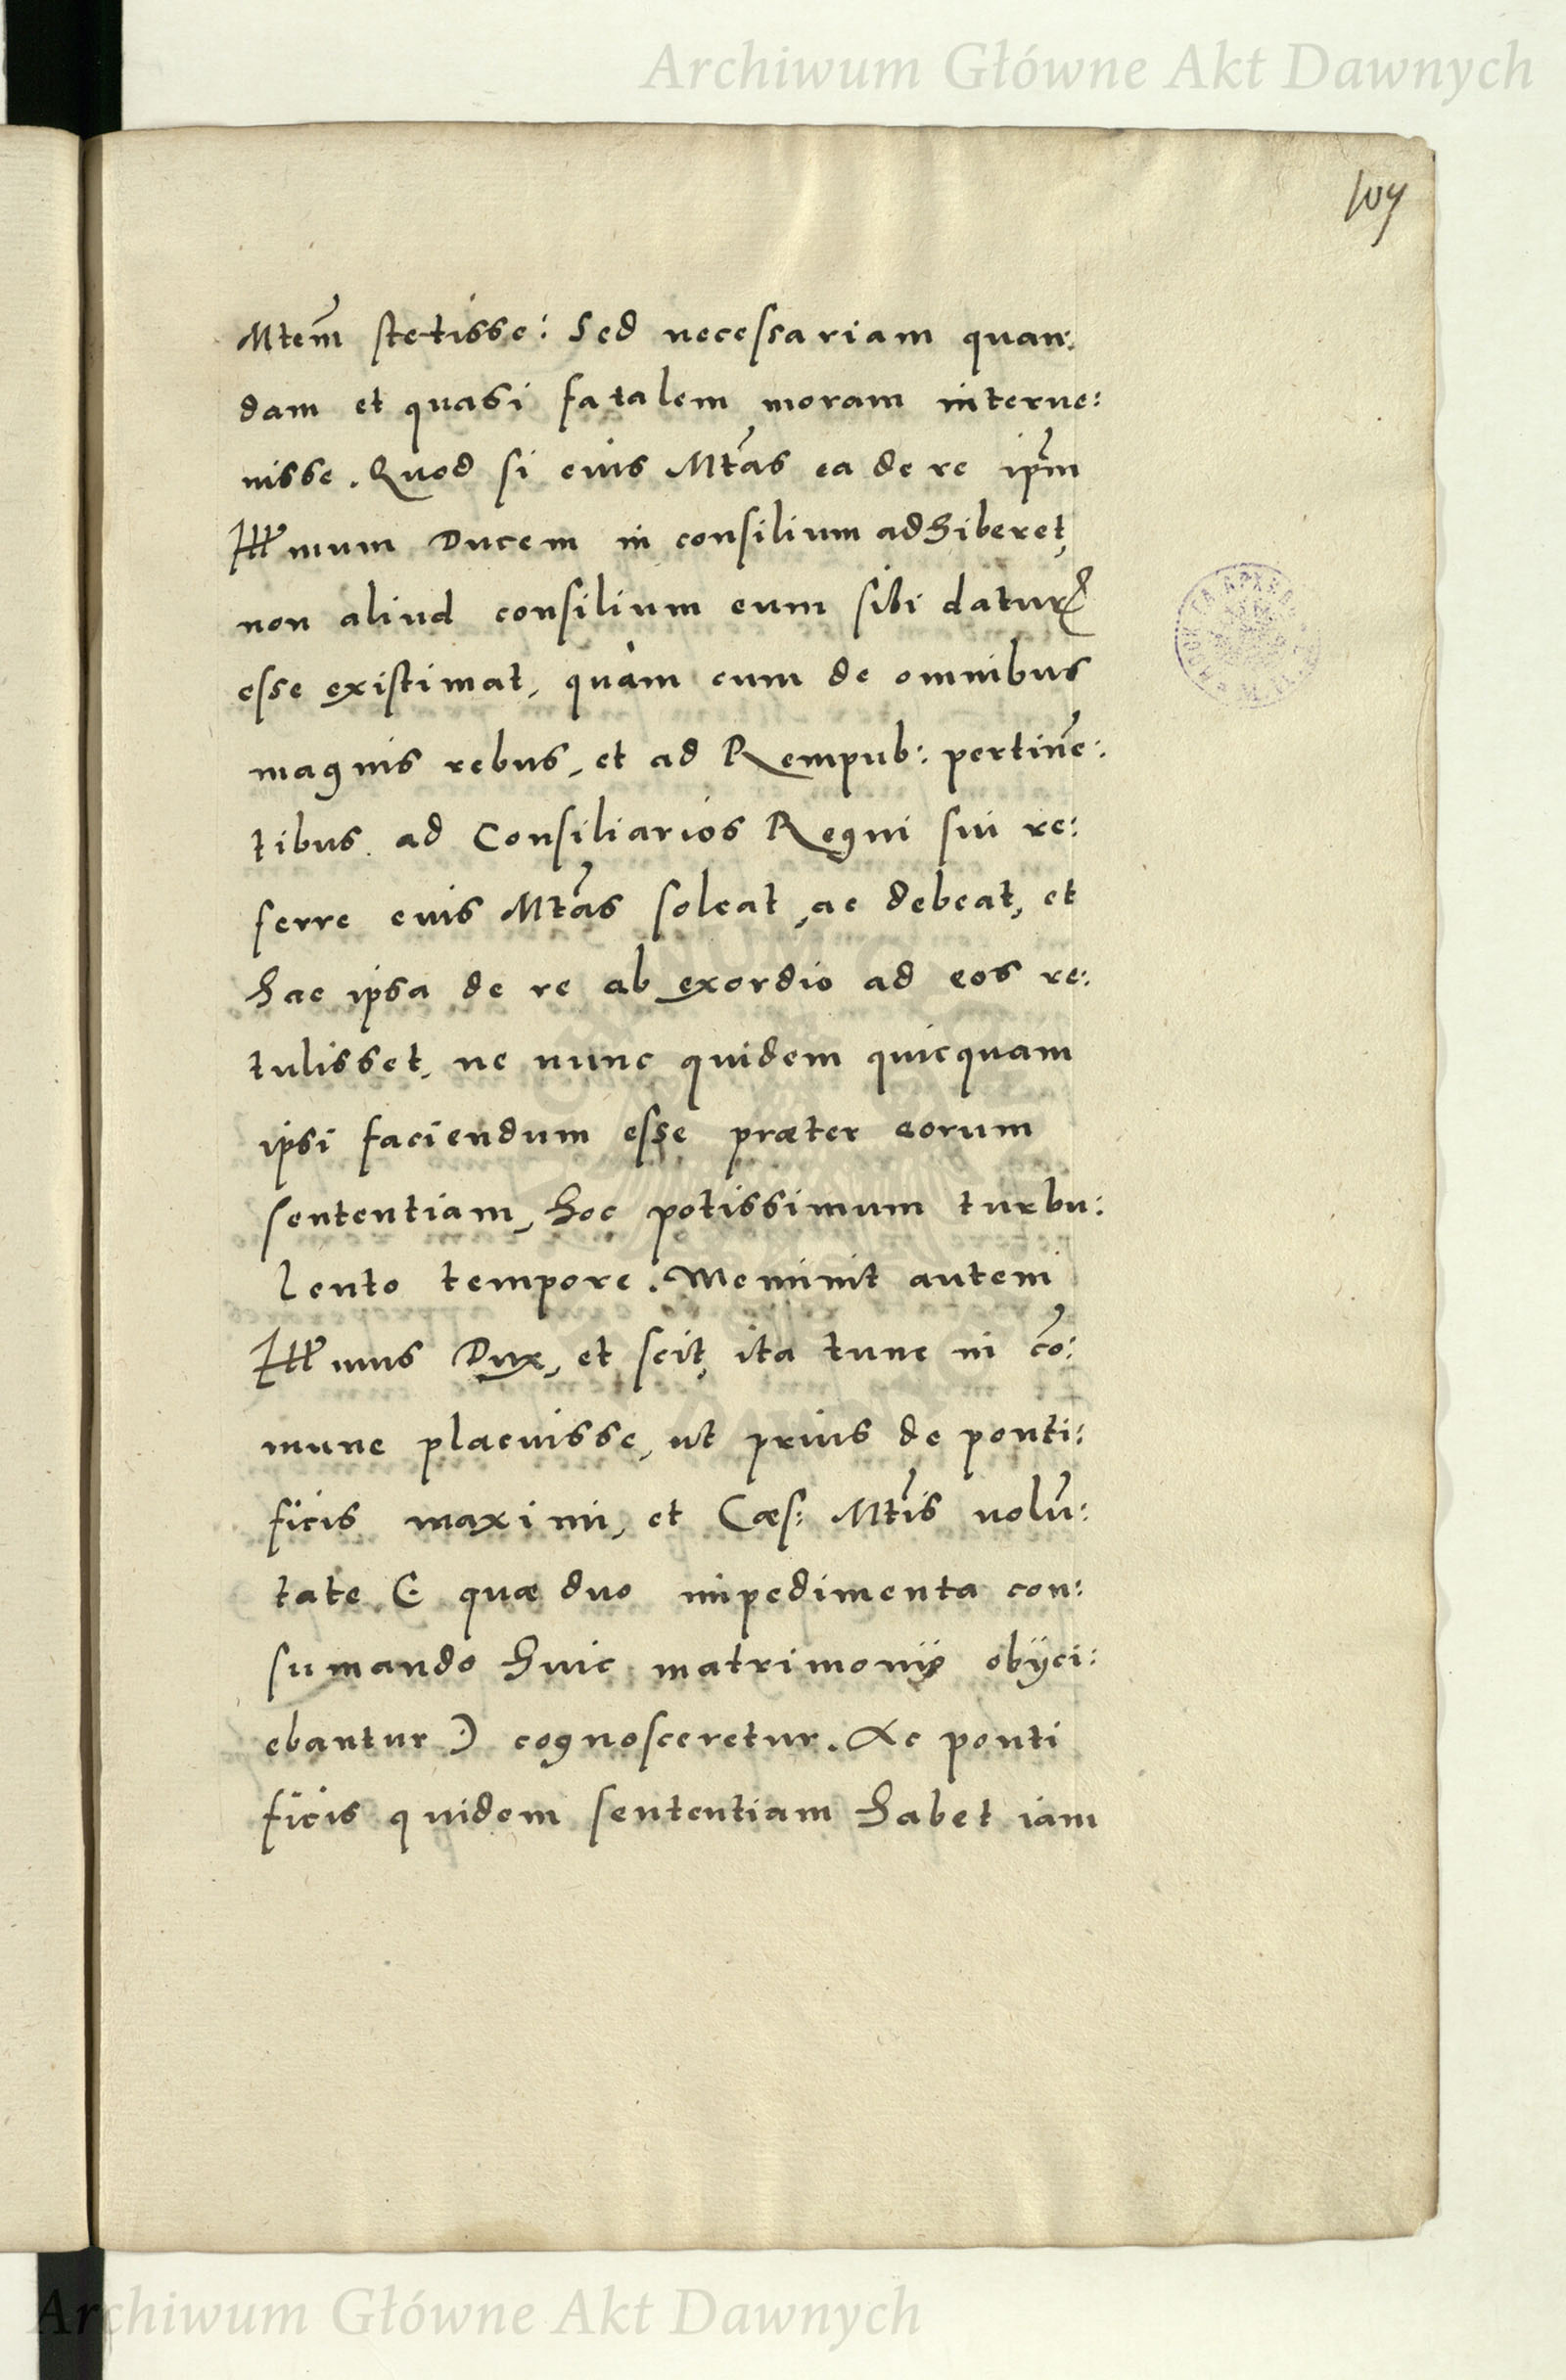 Archiwum Główne Akt Dawnych
109
Mtem̃ stetisse: Sed necessariam quan:
dam et quasi fatalem moram interue:
nisse. Quod si eius Mtãs ea de re ip̃m
Illmum Ducem in consilium adhiberet,
non aliud consilium eum sibi datur
esse existimat, quàm cum de omnibus
magnis rebus, et ad Rempub: pertinẽ:
tibus ad Consiliarios Regni sui re:
ferre eius Mtãs soleat, ac debeat, et
hac ipsa de re ab exordio ad eos re:
tulisset, ne nunc quidem quicquam
ipsi faciendum esse præter eorum
sententiam, hoc potissimum turbu:
lento tempore. Meminit autem
Illmus Dux, et scit, ita tunc in cõ:
mune placuisse, ut prius de ponti:
ficis maximi, et Cæs: Mtĩs uolũ:
tate (: quæ duo impedimenta con:
sumando huic matrimonio obijci:
ebantur :) cognosceretur. Ac ponti
ficis quidem sententiam habet iam
Archiwum Główne Akt Dawnych